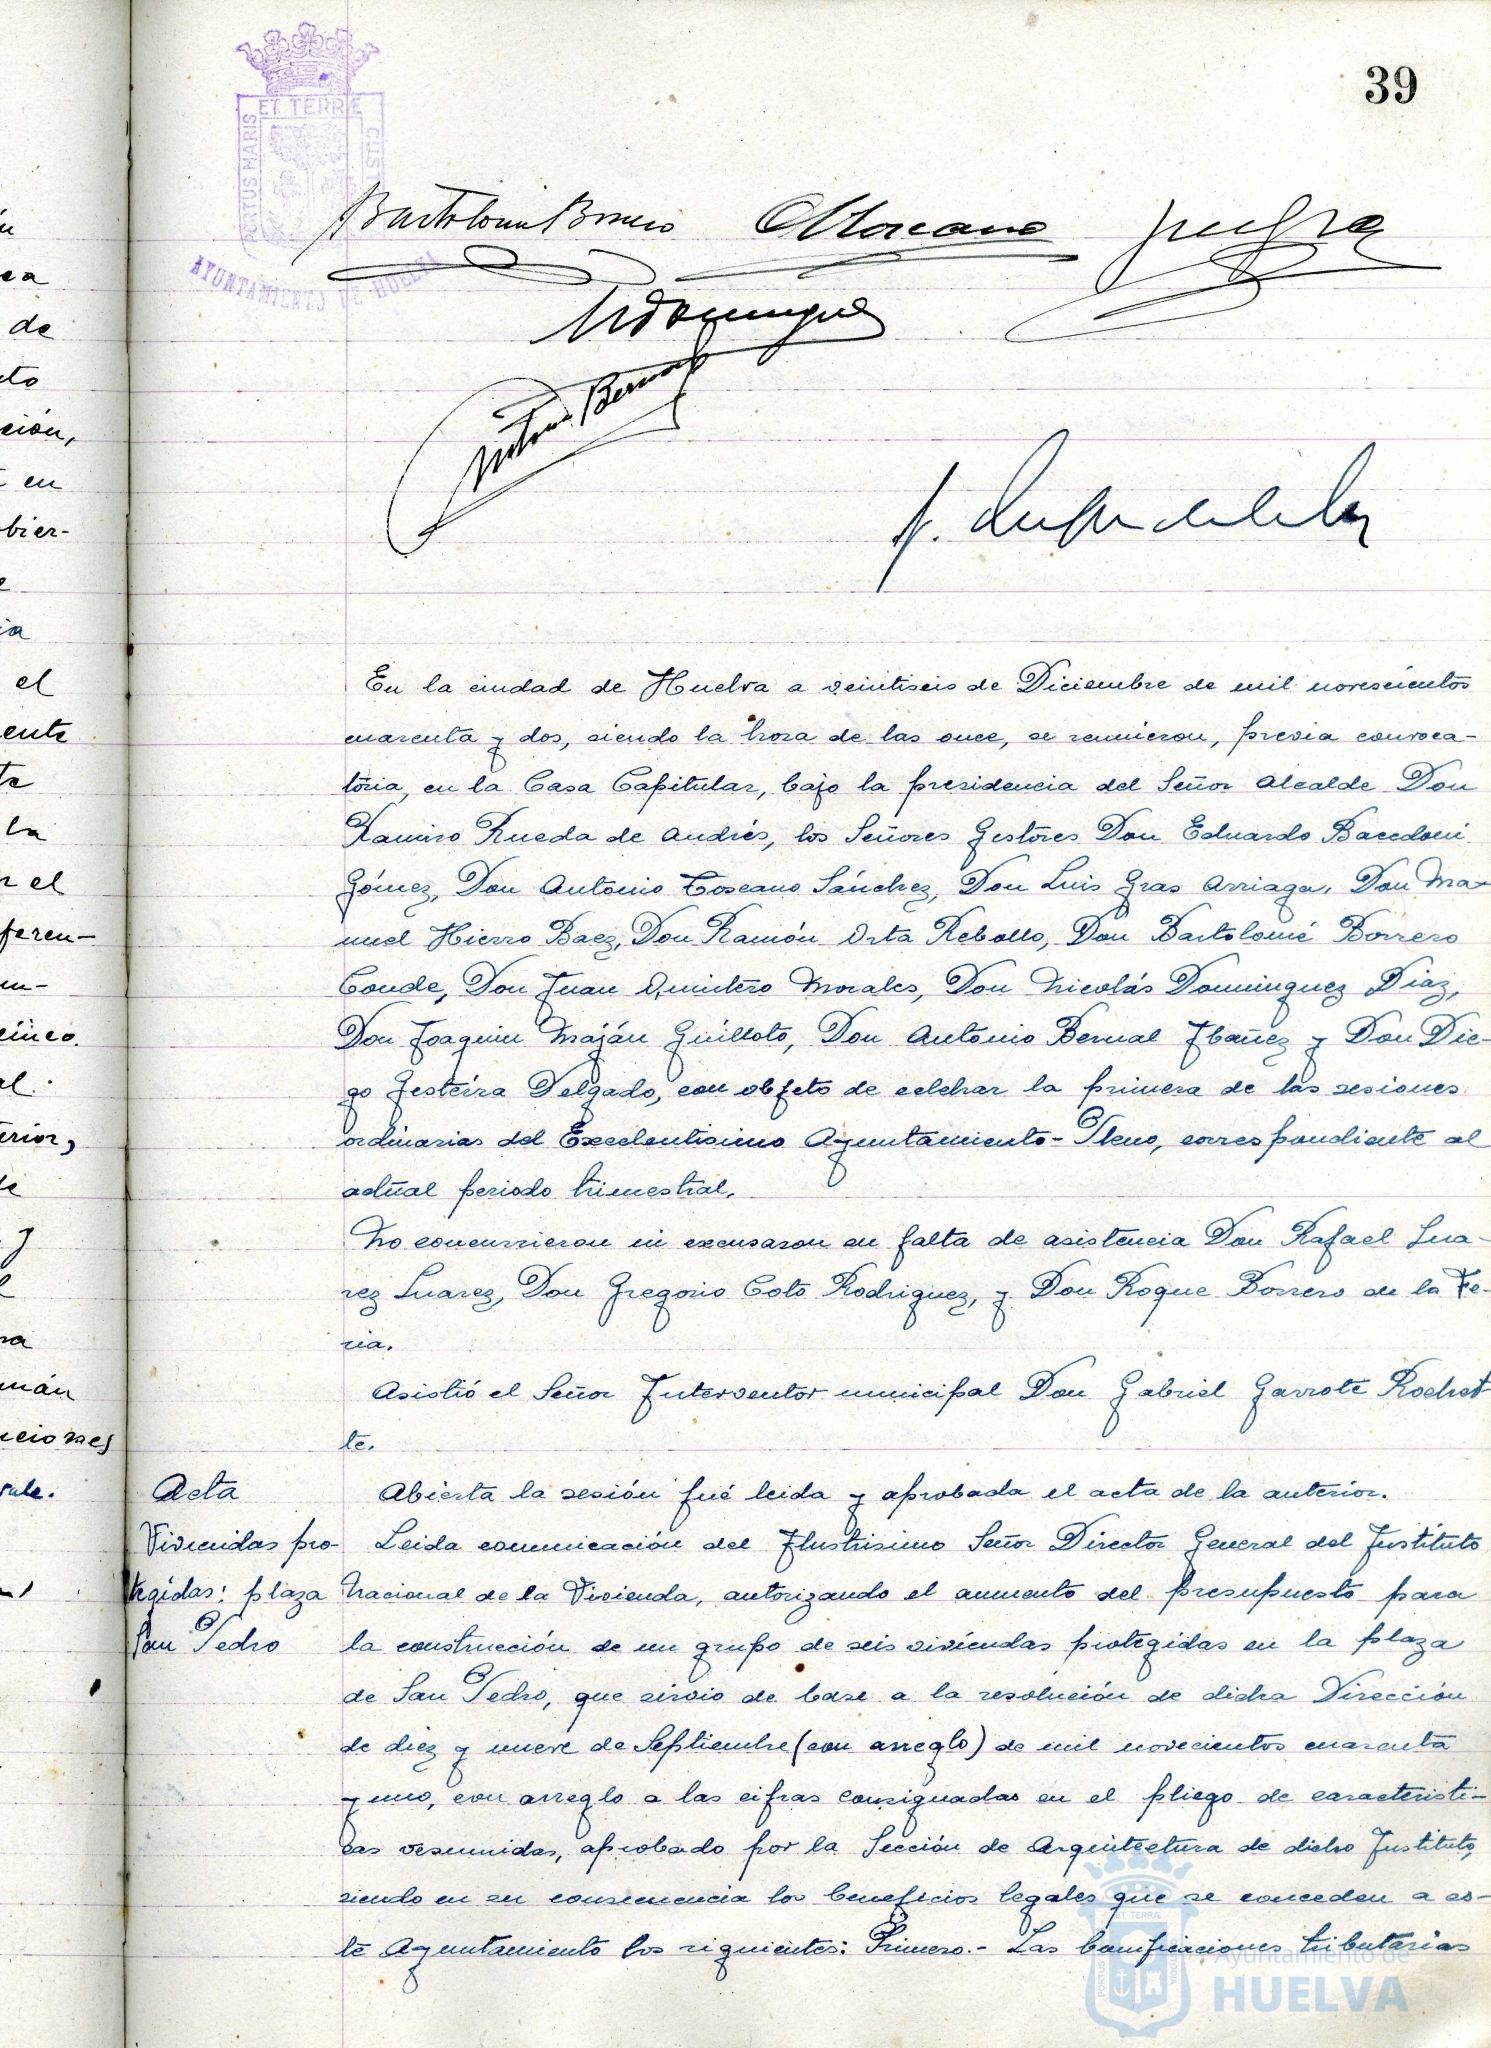 39
PORTUS MARIS ET TERRÆ CUSTODIA
AYUNTAMIENTO DE HUELVA
Bartolomé Borrero
NDominguez
Antonio Bernal
En la ciudad de Huelva a veintiseis de Diciembre de mil novescientos
cuarenta y dos, siendo la hora de las once, se reunieron, previa convoca-
toria, en la Casa Capitular, bajo la presidencia del Señor Alcalde Don
Ramiro Rueda de Andrés, los Señores Gestores Don Eduardo Bacedoni
Gómez, Don Antonio Toscano Sánchez, Don Luis Gras Arriaga, Don Ma-
nuel Hierro Baez, Don Ramón Orta Rebollo, Don Bartolomé Borrero
Conde, Don Juan Quintero Morales, Don Nicolás Dominguez Diaz,
Don Joaquin Maján Guilloto, Don Antonio Bernal Ibañez y Don Die-
go Gesteira Delgado, con objeto de celebrar la primera de las sesiones
ordinarias del Excelentisimo Ayuntamiento-Pleno, correspondiente al
actual periodo trimestral.
No concurrieron ni excusaron su falta de asistencia Don Rafael Sua-
rez Suarez, Don Gregorio Coto Rodriguez, y Don Roque Borrero de la Fe-
ria.
Asistió el Señor Interventor municipal Don Gabriel Garrote Rochet-
te.
Acta
Abierta la sesión fué leida y aprobada el acta de la anterior.
Viviendas pro-
tegidas: plaza
San Pedro
Leida comunicación del Ilustrisimo Señor Director General del Instituto
Nacional de la Vivienda, autorizando el aumento del presupuesto para
la construcción de un grupo de seis viviendas protegidas en la plaza
de San Pedro, que sirvio de base a la resolución de dicha Dirección
de diez y nueve de Septiembre (con arreglo) de mil novecientos cuarenta
y uno, con arreglo a las cifras consignadas en el pliego de caracteristi-
cas resumidas, aprobado por la Sección de Arquitectura de dicho Instituto,
siendo en su consecuencia los beneficios legales que se conceden a es-
te Ayuntamiento los siguientes: Primero.- Las bonificaciones tributarias
Ayuntamiento de
HUELVA